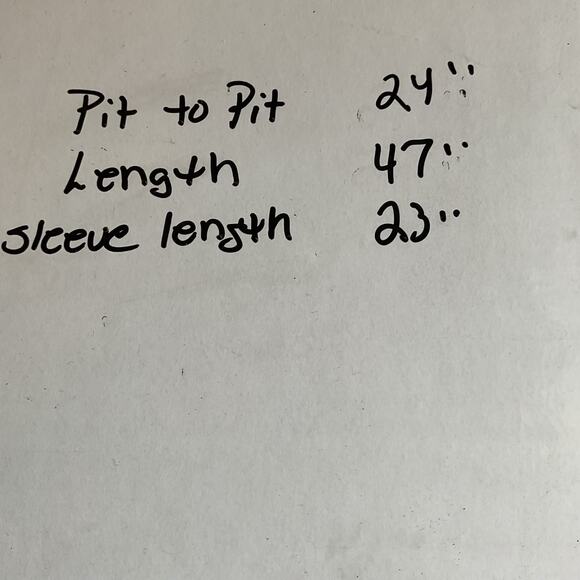 Pit to Pit 24"
Length 47"
sleeve length 23"